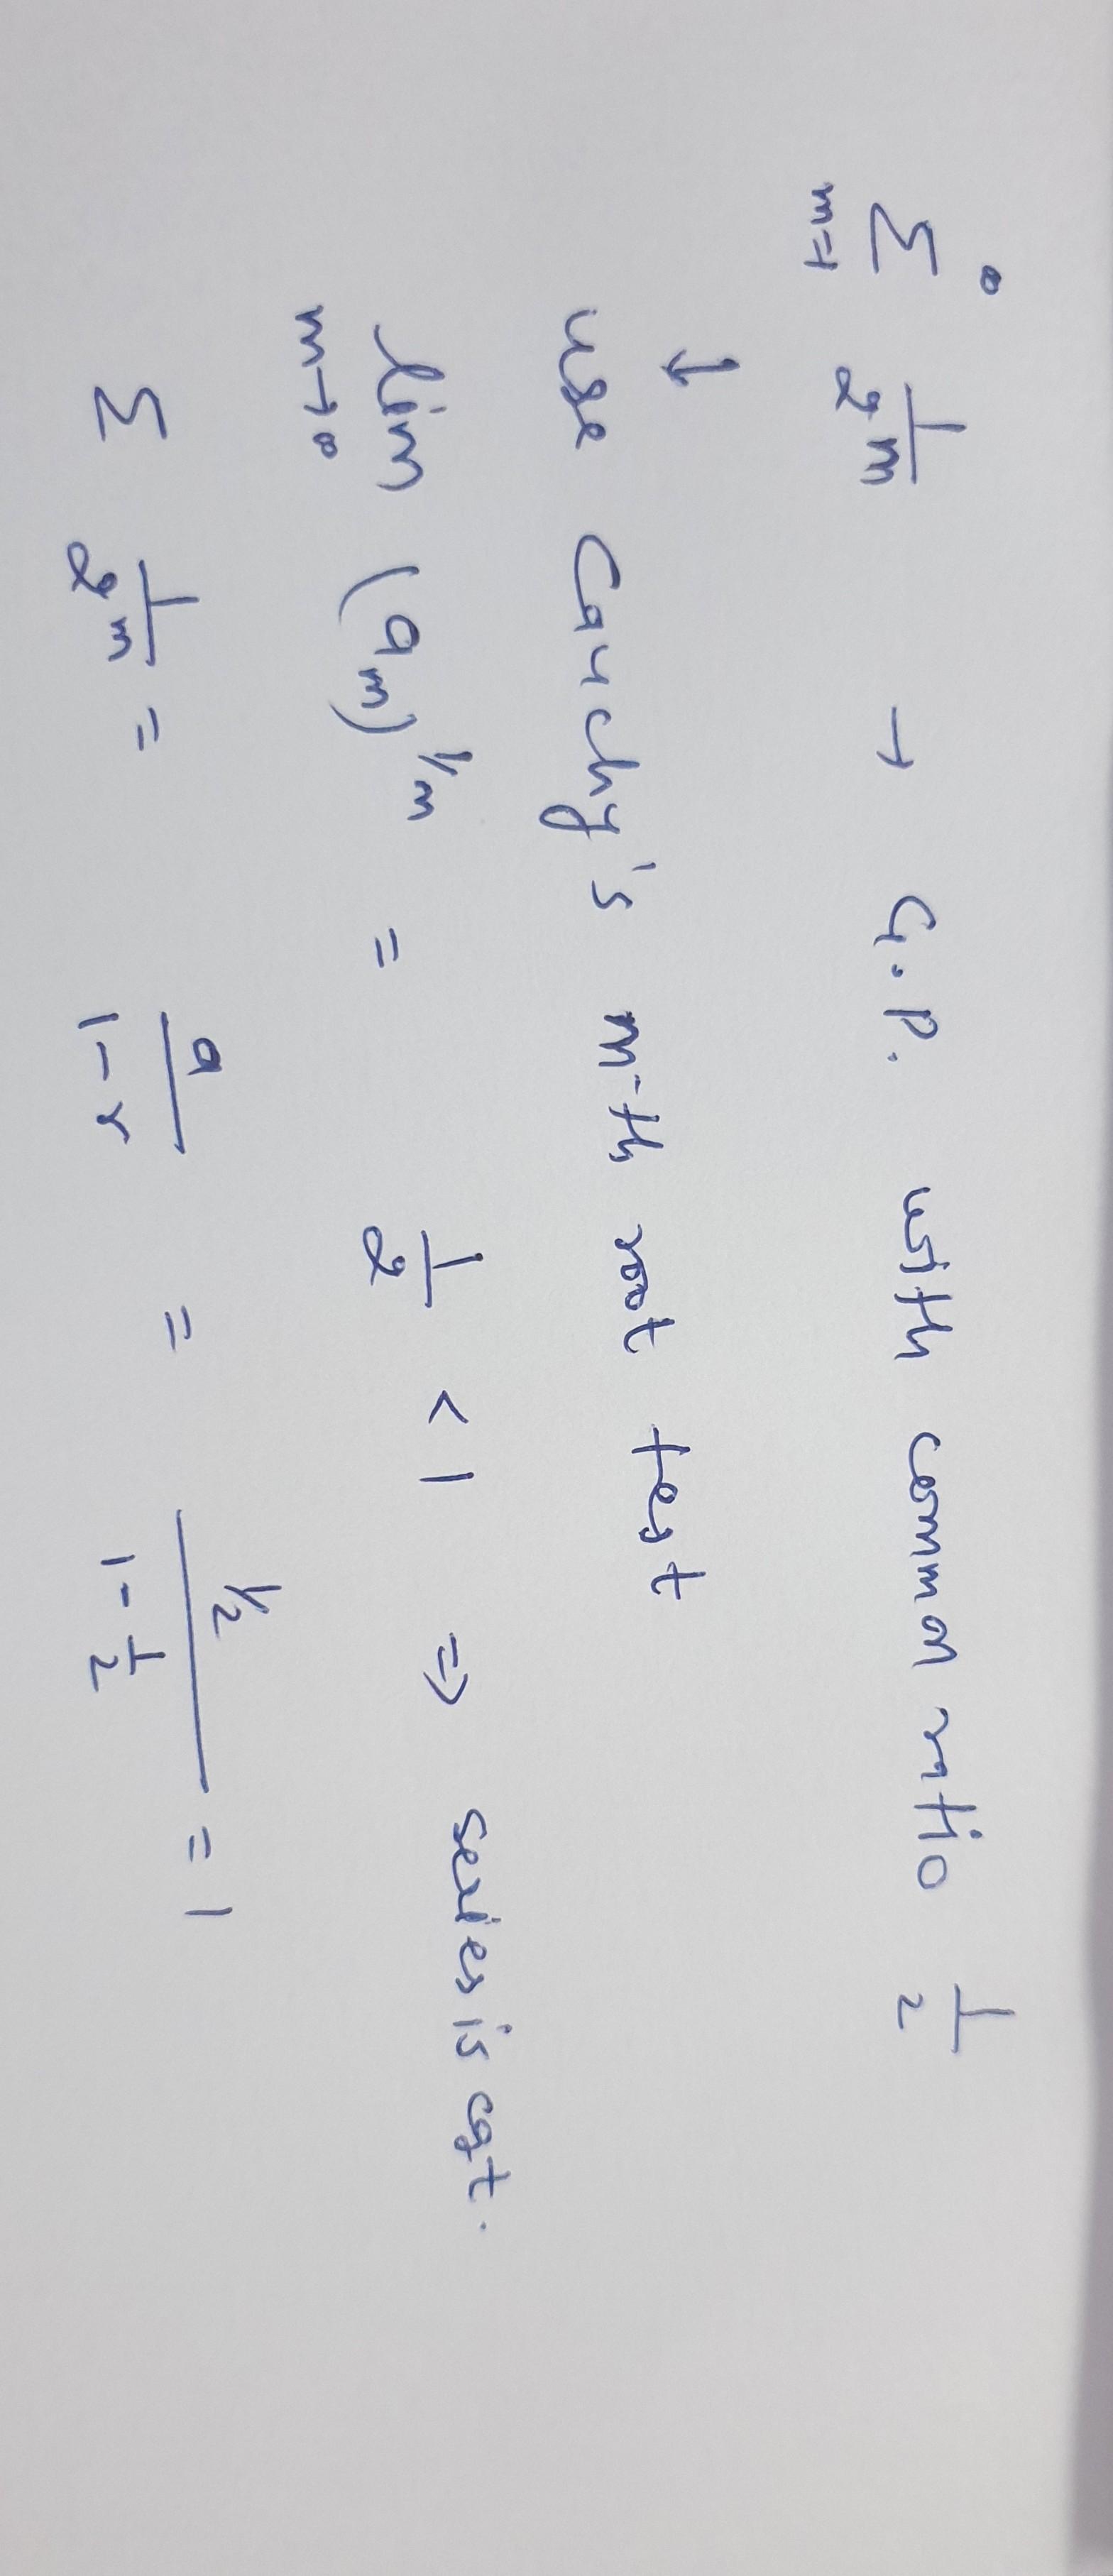 ∞
Σ 1/2^m → G.P. with common ratio 1/2
m=1
↓
use Cauchy's m-th root test
lim (a_m)^1/m = 1/2 < 1 ⇒ series is cgt.
m→∞
Σ 1/2^m = a/1-r = 1/2/1-1/2 = 1